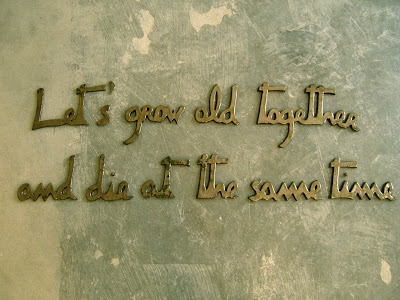 Let's grow old together
and die at the same time